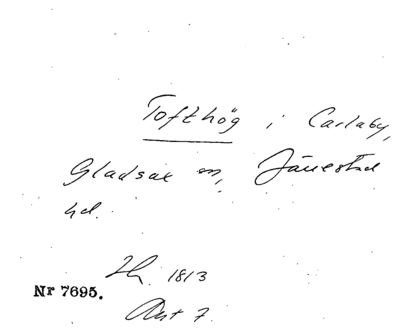 Tofthög i Carlaby,
Gladsax sn, Järrestad
hd.
1813
Nr 7695.
7.